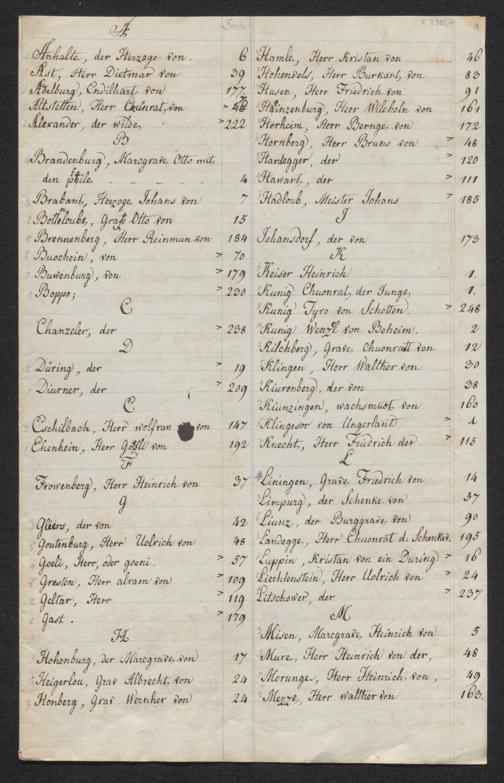 Seite
A
Anhalte, der Herzoge von. 6
Ast, Herr Dietmar von 39
Adelburg, Endilhart von 177
Altstetten, Herr Chunrat, von
Alexander, der wilde, > 222
B
Brandenburg, Marcgrave Otto mit
den pheile 4
Brabant, Herzoge Johans von 7
Botteloube, Graff Otto von 15
Brennenberg, Herr Reinman von 184
Buochein, von > 70
Buwenburg, von > 179
Boppo; > 230
C
Chanzeler, der > 238
D
Düring, der > 19
Diurner, der > 209
E
Eschilbach, Herr wolfran von 147
Ehenheim, Herr Gösli von 192
F
Frowenberg, Herr Heinrich von 37
G
Gliers, der von 42
Goutenburg, Herr Uolrich von 48
Goeli, Herr, oder goeni. > 57
Gresten, Herr alram von > 109
Geltar, Herr > 119
Gast. > 179
H
Hohenburg, der Marcgrave, von 17
Heigerlou, Grav Albrecht, von 24
Honberg, Grav Wernher von 24
Hamle, Herr Kristan von 46
Hohenvels, Herr Burkart, von 83
Husen, Herr Fridrich von 91
Heinzenburg, Herr Wilheln von 161
Horheim, Herr Bernge, von 172
Hornberg, Herr Bruno von > 48
Hardegger, der > 120
Hawart, der > 111
Hadloub, Meister Johans > 185
J
Johansdorf, der von 173
K
Keiser Heinrich 1.
Kunig Chuonrat, der Junge, 1.
Kunig Tyro von Schotten. > 248
Kunig Wenzl von Beheim. 2
Kilchberg, Grave, Chuonratt von 12
Klingen, Herr Walther von 30
Kiurenberg, der von 38
Kiunzingen, wachsmuot, von 160
Klingesor von Ungerland >
Knecht, Herr Fridrich der > 115
L
Liningen, Grave Friedrich von 14
Limpurg, der Schenke von 57
Liunz, der Burggrave, von 90
Landegge, Herr Chuonrat d. Schenke, 195
Luppin, Kristan von ein During > 16
Liechtenstein, Herr Uolrich von > 24
Litschower, der > 237
M
Misen, Marcgrave, Heinrich von 5
Mure, Herr Heinrich von der, 48
Morunge, Herr Heinrich von, 49
Mezze, Herr walther von 163.